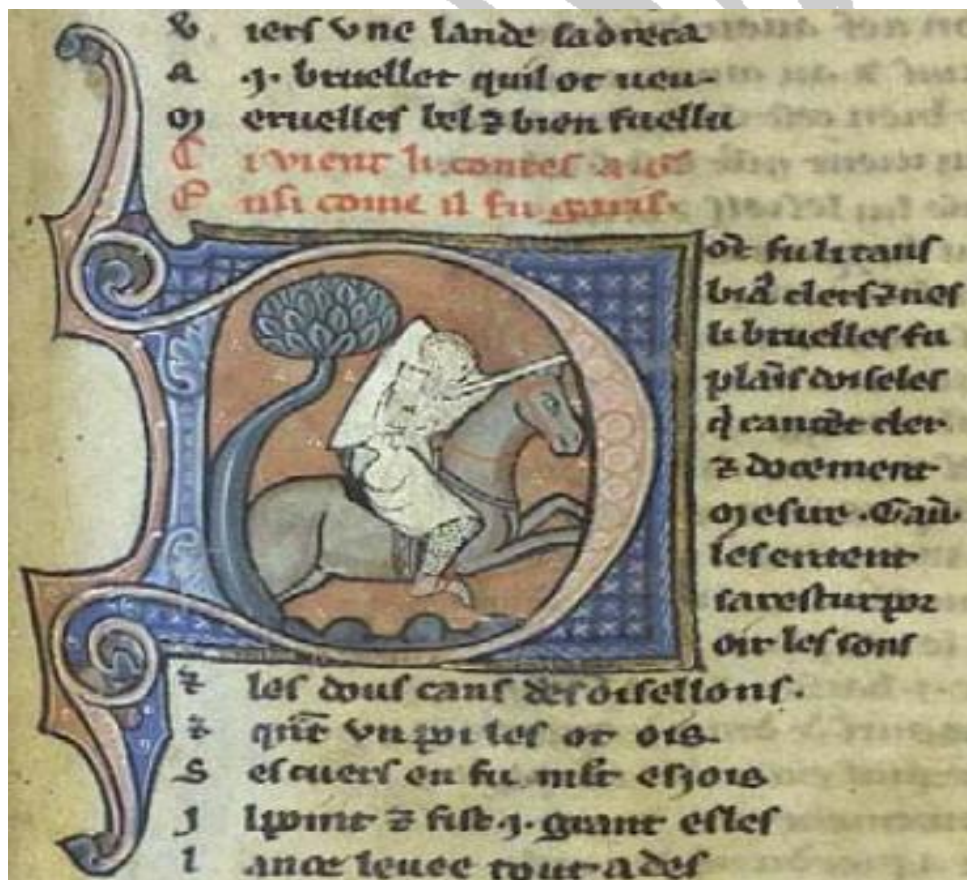 V iers vne lande sadreca
A .j. bruellet quil ot ueu-
M eruelles bel ⁊ bien fuellu
C i vient li contes a
E nsi come il fu garis.
fu li tans
clers ⁊ nes
li bruelles fu
plains doiseles
cler
⁊ docement
Mesire .Gau.
les entent
sarestut por
oir les sons
⁊ les dous cans des oisellons.
⁊ qnt vn poi les ot ois.
S es cuers en fu mlt esjois
J l point ⁊ fist .j. grant esles
L ance leuee tout ades